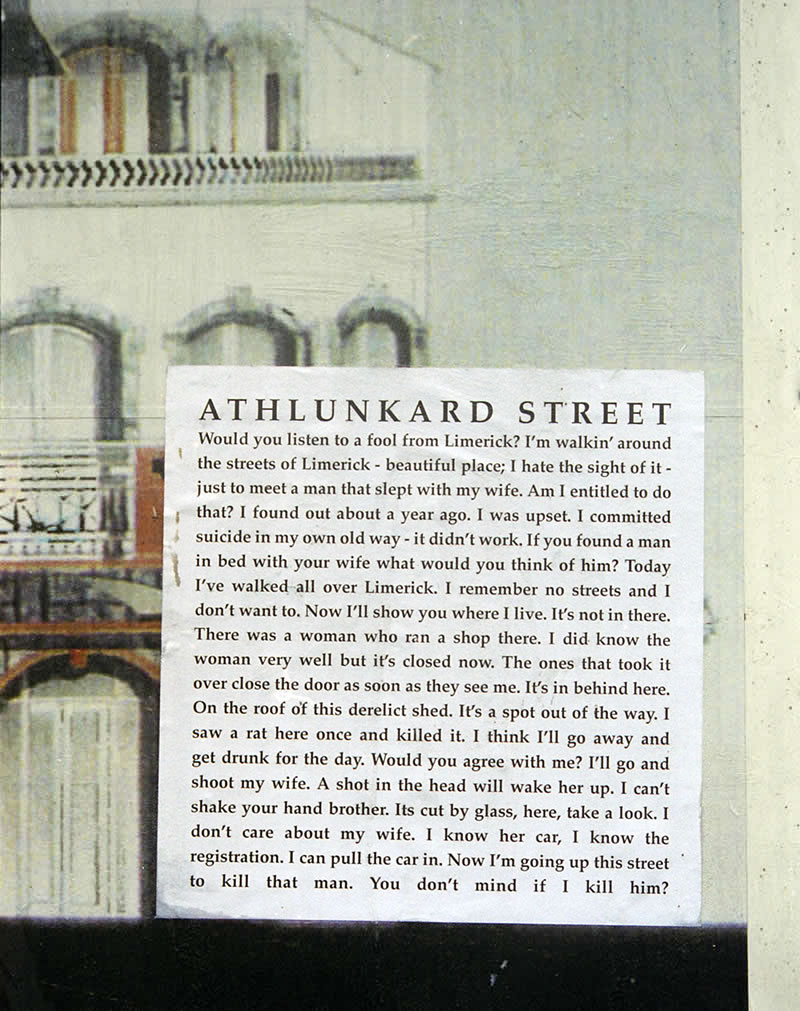 ATHLUNKARD STREET
Would you listen to a fool from Limerick? I'm walkin' around
the streets of Limerick - beautiful place; I hate the sight of it -
just to meet a man that slept with my wife. Am I entitled to do
that? I found out about a year ago. I was upset. I committed
suicide in my own old way - it didn't work. If you found a man
in bed with your wife what would you think of him? Today
I've walked all over Limerick. I remember no streets and I
don't want to. Now I'll show you where I live. It's not in there.
There was a woman who ran a shop there. I did know the
woman very well but it's closed now. The ones that took it
over close the door as soon as they see me. It's in behind here.
On the roof of this derelict shed. It's a spot out of the way. I
saw a rat here once and killed it. I think I'll go away and
get drunk for the day. Would you agree with me? I'll go and
shoot my wife. A shot in the head will wake her up. I can't
shake your hand brother. Its cut by glass, here, take a look. I
don't care about my wife. I know her car, I know the
registration. I can pull the car in. Now I'm going up this street
to kill that man. You don't mind if I kill him?